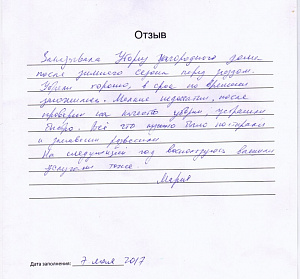 Отзыв
Заказывала уборку загородного дома
после зимнего сезона перед заездом.
Убрали хорошо, в срок по времени
уложились. Мелкие недочеты, после
проверки на качество уборки, устранили
быстро. Всё что нужно было постирали
и занавески развесили
На следующий год воспользуюсь вашими
услугами тоже.
Мария
Дата заполнения: 7 мая 2017